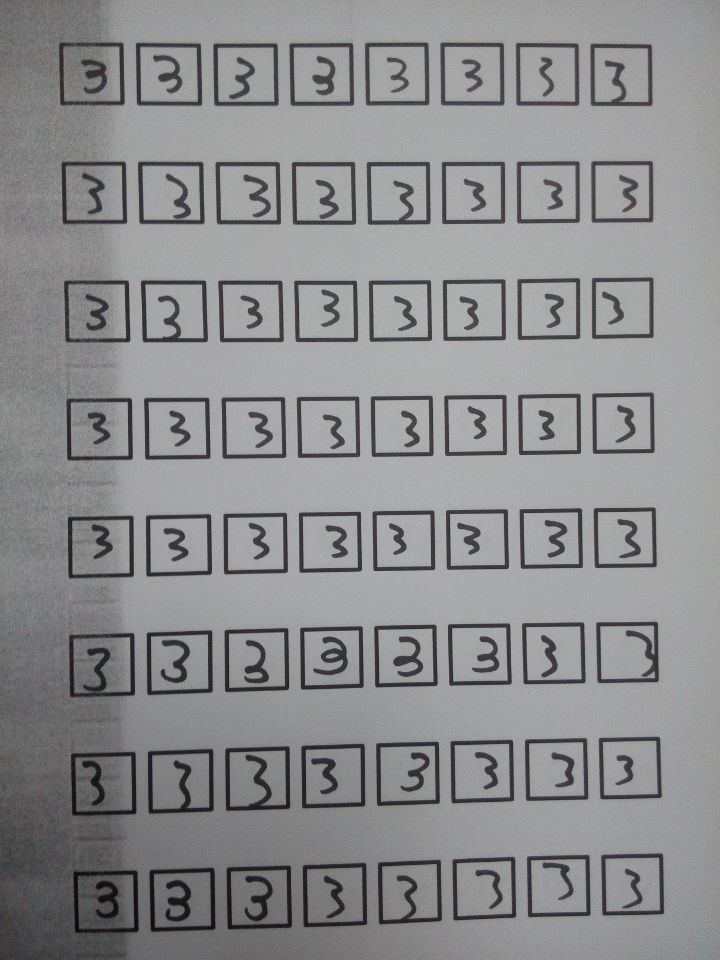 3 3 3 3 3 3 3 3
3 3 3 3 3 3 3 3
3 3 3 3 3 3 3 3
3 3 3 3 3 3 3 3
3 3 3 3 3 3 3 3
3 3 3 3 3 3 3 3
3 3 3 3 3 3 3 3
3 3 3 3 3 3 3 3